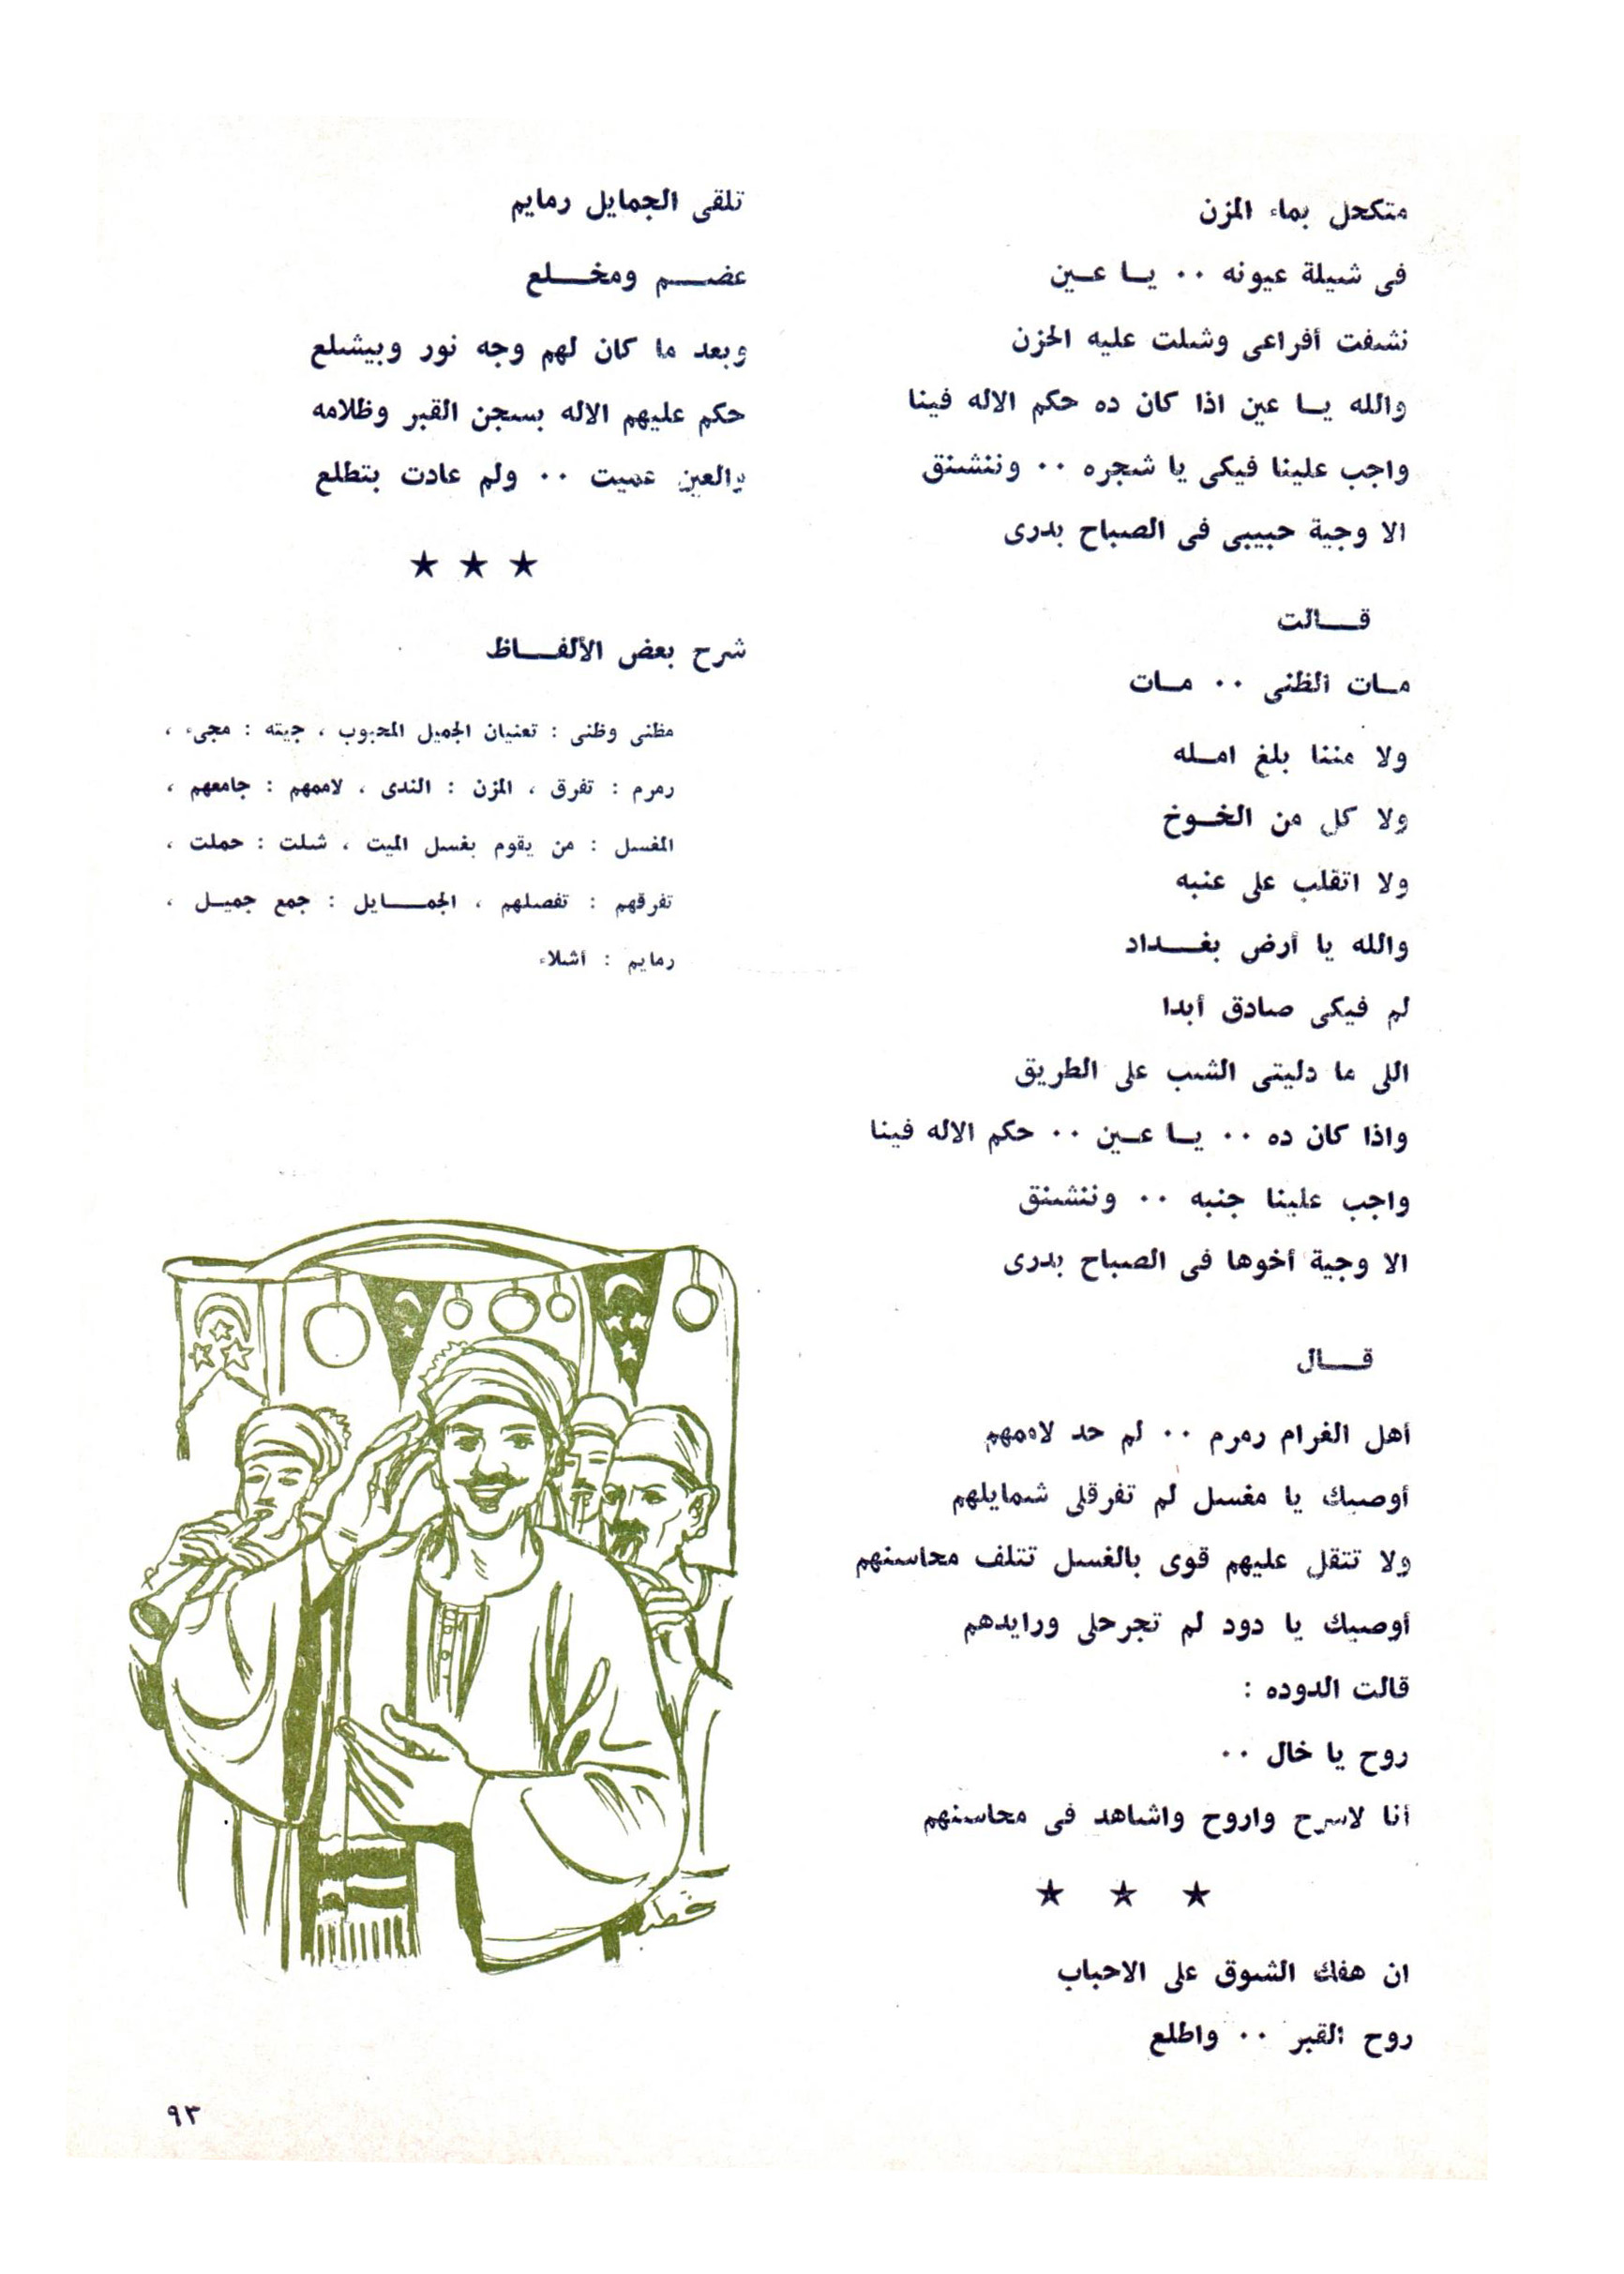 متكحل بماء المزن
فى شيلة عيونه ٠٠ يــا عــين
نشفت أفراعى وشلت عليه الحزن
والله يــا عين اذا كان ده حكم الاله فينا
واجب علينا فيكى يا شجره ٠٠ وننشنق
الا وجية حبيبى فى الصباح بدرى
قــــالت
مــات الظنى ٠٠ مــات
ولا مننا بلغ امــله
ولا كل من الخــوخ
ولا اتقلب على عنبه
والله يا أرض بغــــداد
لم فيكى صادق أبدا
اللى ما دليتى الشب على الطريق
واذا كان ده ٠٠ يــا عــين ٠٠ حكم الاله فينا
واجب علينا جنبه ٠٠ وننشنق
الا وجية أخوها فى الصباح بدرى
قــــال
أهل الغرام رمرم ٠٠ لم حد لاممهم
أوصيك يا مغسل لم تفرقلى شمايلهم
ولا تتقل عليهم قوى بالغسل تتلف محاسنهم
أوصيك يا دود لم تجرحلى ورايدهم
قالت الدوده :
روح يا خال ٠٠
أنا لاسرح واروح واشاهد فى محاسنهم
★ ★ ★
ان هفك الشوق على الاحباب
روح القبر ٠٠ واطلع
تلقى الجمايل رمايم
عضــــم ومخــــلع
وبعد ما كان لهم وجه نور وبيشلع
حكم عليهم الاله بسجن القبر وظلامه
والعين عميت ٠٠ ولم عادت بتطلع
★ ★ ★
شرح بعض الألفــــاظ
مظنى وظنى : تعنيان الجميل المحبوب ، جيته : مجىء ،
رمرم : تفرق ، المزن : الندى ، لاممهم : جامعهم ،
المغسل : من يقوم بغسل الميت ، شلت : حملت ،
تفرقهم : تفصلهم ، الجمــــايل : جمع جميــل ،
رمايم : أشلاء
٩٣